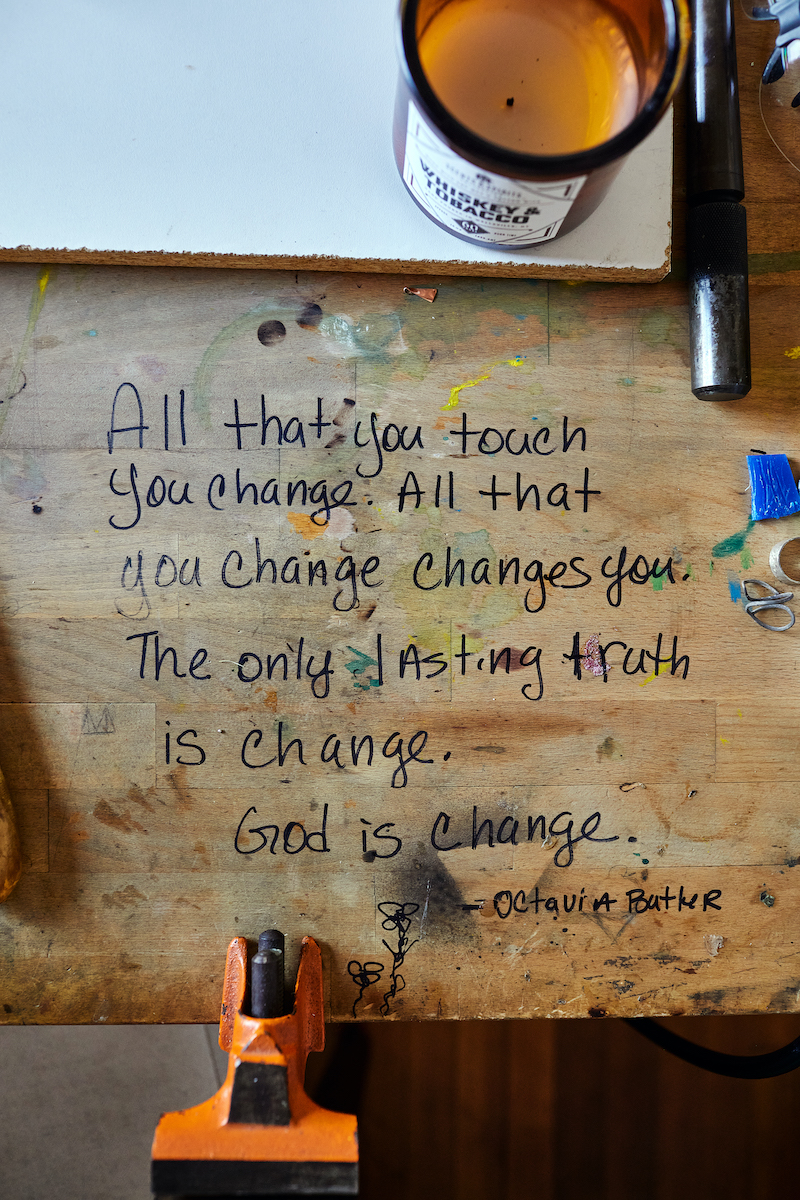 WHISKEY &
TOBACCO
All that you touch
You change. All that
you change changes you.
The only lasting truth
is change.
God is change.
- Octavia Butler